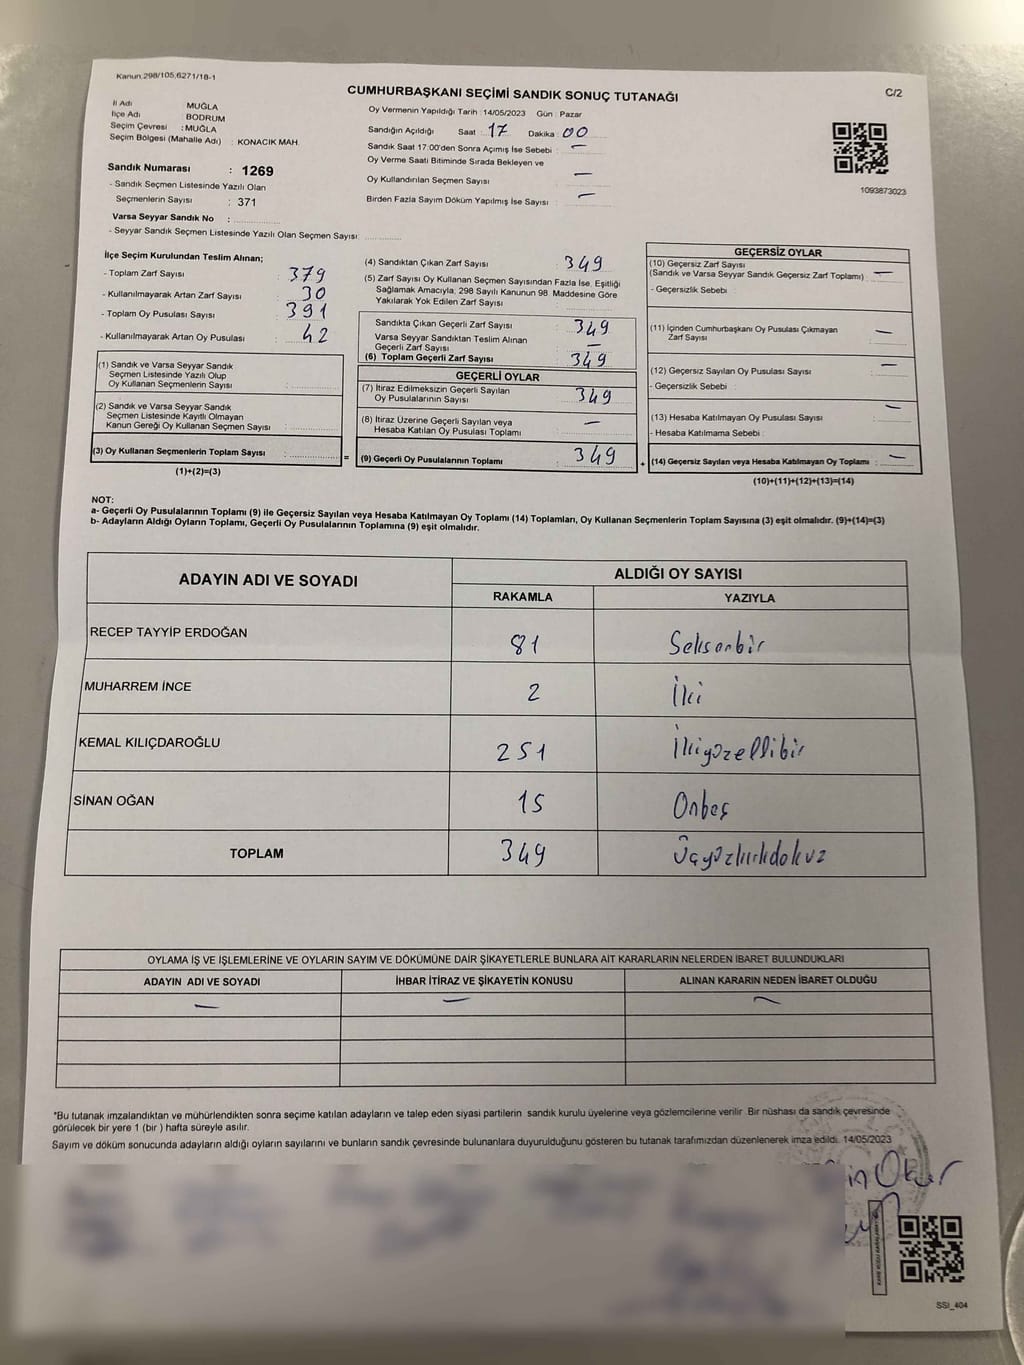 Kanun,298/105,6271/18-1
CUMHURBAŞKANI SEÇİMİ SANDIK SONUÇ TUTANAĞI
C/2
İl Adı MUĞLA
İlçe Adı : BODRUM
Seçim Çevresi : MUĞLA
Seçim Bölgesi (Mahalle Adı) : KONACIK MAH.
Oy Vermenin Yapıldığı Tarih :14/05/2023 Gün : Pazar
Sandığın Açıldığı Saat : 17 Dakika : 00
Sandık Saat 17:00'den Sonra Açımış İse Sebebi : —
Oy Verme Saati Bitiminde Sırada Bekleyen ve
Oy Kullandırılan Seçmen Sayısı : —
Birden Fazla Sayım Döküm Yapılmış İse Sayısı : —
1093873023
Sandık Numarası : 1269
- Sandık Seçmen Listesinde Yazılı Olan
Seçmenlerin Sayısı : 371
Varsa Seyyar Sandık No :
- Seyyar Sandık Seçmen Listesinde Yazılı Olan Seçmen Sayısı:
İlçe Seçim Kurulundan Teslim Alınan;
- Toplam Zarf Sayısı : 379
- Kullanılmayarak Artan Zarf Sayısı : 30
- Toplam Oy Pusulası Sayısı : 391
- Kullanılmayarak Artan Oy Pusulası : 42
(1) Sandık ve Varsa Seyyar Sandık
Seçmen Listesinde Yazılı Olup
Oy Kullanan Seçmenlerin Sayısı :
(2) Sandık ve Varsa Seyyar Sandık
Seçmen Listesinde Kayıtlı Olmayan
Kanun Gereği Oy Kullanan Seçmen Sayısı :
(3) Oy Kullanan Seçmenlerin Toplam Sayısı :
(1)+(2)=(3)
=
(4) Sandıktan Çıkan Zarf Sayısı : 349
(5) Zarf Sayısı Oy Kullanan Seçmen Sayısından Fazla İse, Eşitliği
Sağlamak Amacıyla, 298 Sayılı Kanunun 98. Maddesine Göre
Yakılarak Yok Edilen Zarf Sayısı :
Sandıkta Çıkan Geçerli Zarf Sayısı : 349
Varsa Seyyar Sandıktan Teslim Alınan
Geçerli Zarf Sayısı : —
(6) Toplam Geçerli Zarf Sayısı : 349
GEÇERLİ OYLAR
(7) İtiraz Edilmeksizin Geçerli Sayılan
Oy Pusulalarının Sayısı : 349
(8) İtiraz Üzerine Geçerli Sayılan veya
Hesaba Katılan Oy Pusulası Toplamı : —
(9) Geçerli Oy Pusulalarının Toplamı : 349
+
GEÇERSİZ OYLAR
(10) Geçersiz Zarf Sayısı
(Sandık ve Varsa Seyyar Sandık Geçersiz Zarf Toplamı) : —
- Geçersizlik Sebebi :
(11) İçinden Cumhurbaşkanı Oy Pusulası Çıkmayan
Zarf Sayısı : —
(12) Geçersiz Sayılan Oy Pusulası Sayısı : —
- Geçersizlik Sebebi :
(13) Hesaba Katılmayan Oy Pusulası Sayısı : —
- Hesaba Katılmama Sebebi :
(14) Geçersiz Sayılan veya Hesaba Katılmayan Oy Toplamı : —
(10)+(11)+(12)+(13)=(14)
NOT:
a- Geçerli Oy Pusulalarının Toplamı (9) ile Geçersiz Sayılan veya Hesaba Katılmayan Oy Toplamı (14) Toplamları, Oy Kullanan Seçmenlerin Toplam Sayısına (3) eşit olmalıdır. (9)+(14)=(3)
b- Adayların Aldığı Oyların Toplamı, Geçerli Oy Pusulalarının Toplamına (9) eşit olmalıdır.
ADAYIN ADI VE SOYADI
ALDIĞI OY SAYISI
RAKAMLA YAZIYLA
RECEP TAYYİP ERDOĞAN 81 Seksenbir
MUHARREM İNCE 2 İki
KEMAL KILIÇDAROĞLU 251 İkiyüzellibir
SİNAN OĞAN 15 Onbeş
TOPLAM 349 Üçyüzkırkdokuz
OYLAMA İŞ VE İŞLEMLERİNE VE OYLARIN SAYIM VE DÖKÜMÜNE DAİR ŞİKAYETLERLE BUNLARA AİT KARARLARIN NELERDEN İBARET BULUNDUKLARI
ADAYIN ADI VE SOYADI İHBAR İTİRAZ VE ŞİKAYETİN KONUSU ALINAN KARARIN NEDEN İBARET OLDUĞU
— — —
*Bu tutanak imzalandıktan ve mühürlendikten sonra seçime katılan adayların ve talep eden siyasi partilerin sandık kurulu üyelerine veya gözlemcilerine verilir. Bir nüshası da sandık çevresinde
görülecek bir yere 1 (bir ) hafta süreyle asılır.
Sayım ve döküm sonucunda adayların aldığı oyların sayılarını ve bunların sandık çevresinde bulunanlara duyurulduğunu gösteren bu tutanak tarafımızdan düzenlenerek imza edildi. 14/05/2023
SSI_404